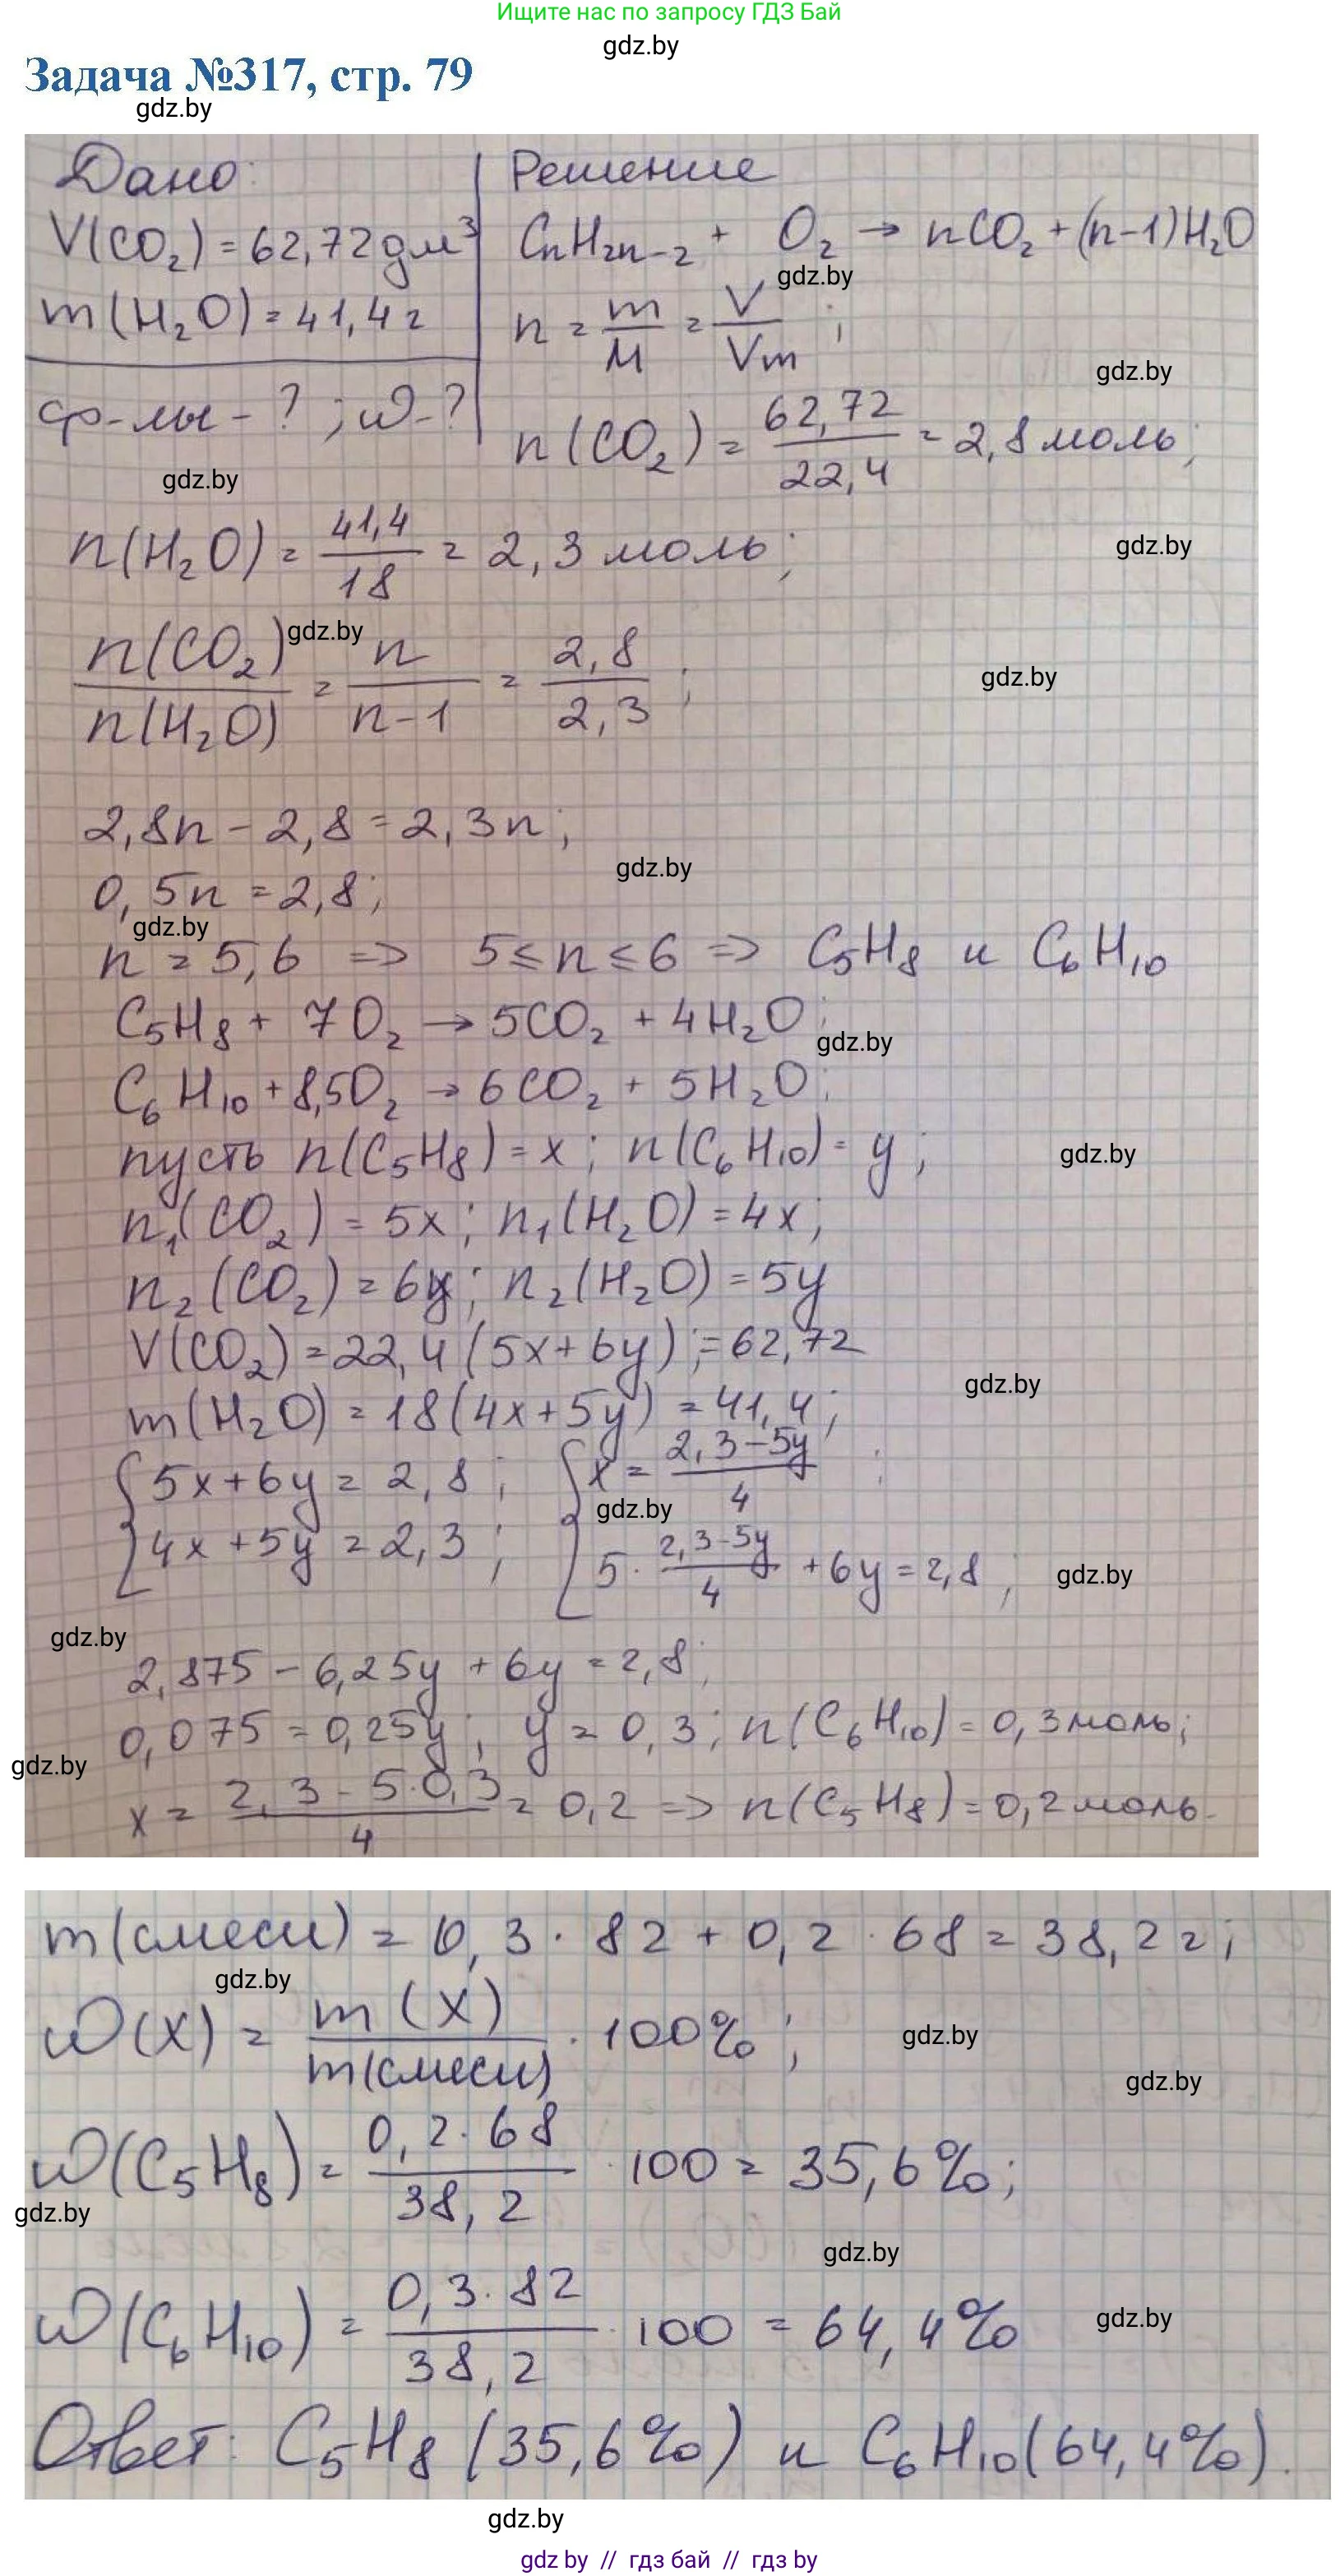 Ищите нас по запросу ГДЗ Бай
gdz.by
Задача №317, стр. 79
gdz.by
Дано: Решение
V(CO₂) = 62,72 дм³ CnH2n-2 + O₂ → nCO₂ + (n-1)H₂O
gdz.by
m(H₂O) = 41,4 г n = m/M = V/Vm ;
gdz.by
ф-лы - ? ; ω - ? n(CO₂) = 62,72/22,4 = 2,8 моль;
gdz.by
n(H₂O) = 41,4/18 = 2,3 моль;
gdz.by
gdz.by
n(CO₂)/n(H₂O) = n/n-1 = 2,8/2,3 ;
gdz.by
2,8n - 2,8 = 2,3n;
gdz.by
0,5n = 2,8;
gdz.by
n = 5,6 => 5 ≤ n ≤ 6 => C₅H₈ и C₆H₁₀
C₅H₈ + 7O₂ → 5CO₂ + 4H₂O;
gdz.by
C₆H₁₀ + 8,5O₂ → 6CO₂ + 5H₂O;
пусть n(C₅H₈) = x; n(C₆H₁₀) = y;
gdz.by
n₁(CO₂) = 5x; n₁(H₂O) = 4x;
n₂(CO₂) = 6y; n₂(H₂O) = 5y
V(CO₂) = 22,4(5x+6y); = 62,72
gdz.by
m(H₂O) = 18(4x+5y) = 41,4;
{5x+6y = 2,8; {x = 2,3-5y/4 ;
gdz.by
4x+5y = 2,3; 5·2,3-5y/4 + 6y = 2,8;
gdz.by
gdz.by
2,875 - 6,25y + 6y = 2,8;
0,075 = 0,25y; y = 0,3; n(C₆H₁₀) = 0,3 моль;
gdz.by
x = 2,3 - 5·0,3/4 = 0,2 => n(C₅H₈) = 0,2 моль.
m(смеси) = 0,3 · 82 + 0,2 · 68 = 38,2 г;
gdz.by
ω(X) = m(X)/m(смеси) · 100%;
gdz.by
gdz.by
ω(C₅H₈) = 0,2·68/38,2 · 100 = 35,6%;
gdz.by
gdz.by
ω(C₆H₁₀) = 0,3·82/38,2 · 100 = 64,4%
gdz.by
Ответ: C₅H₈ (35,6%) и C₆H₁₀ (64,4%).
gdz.by
gdz by // гдз бай // гдз by